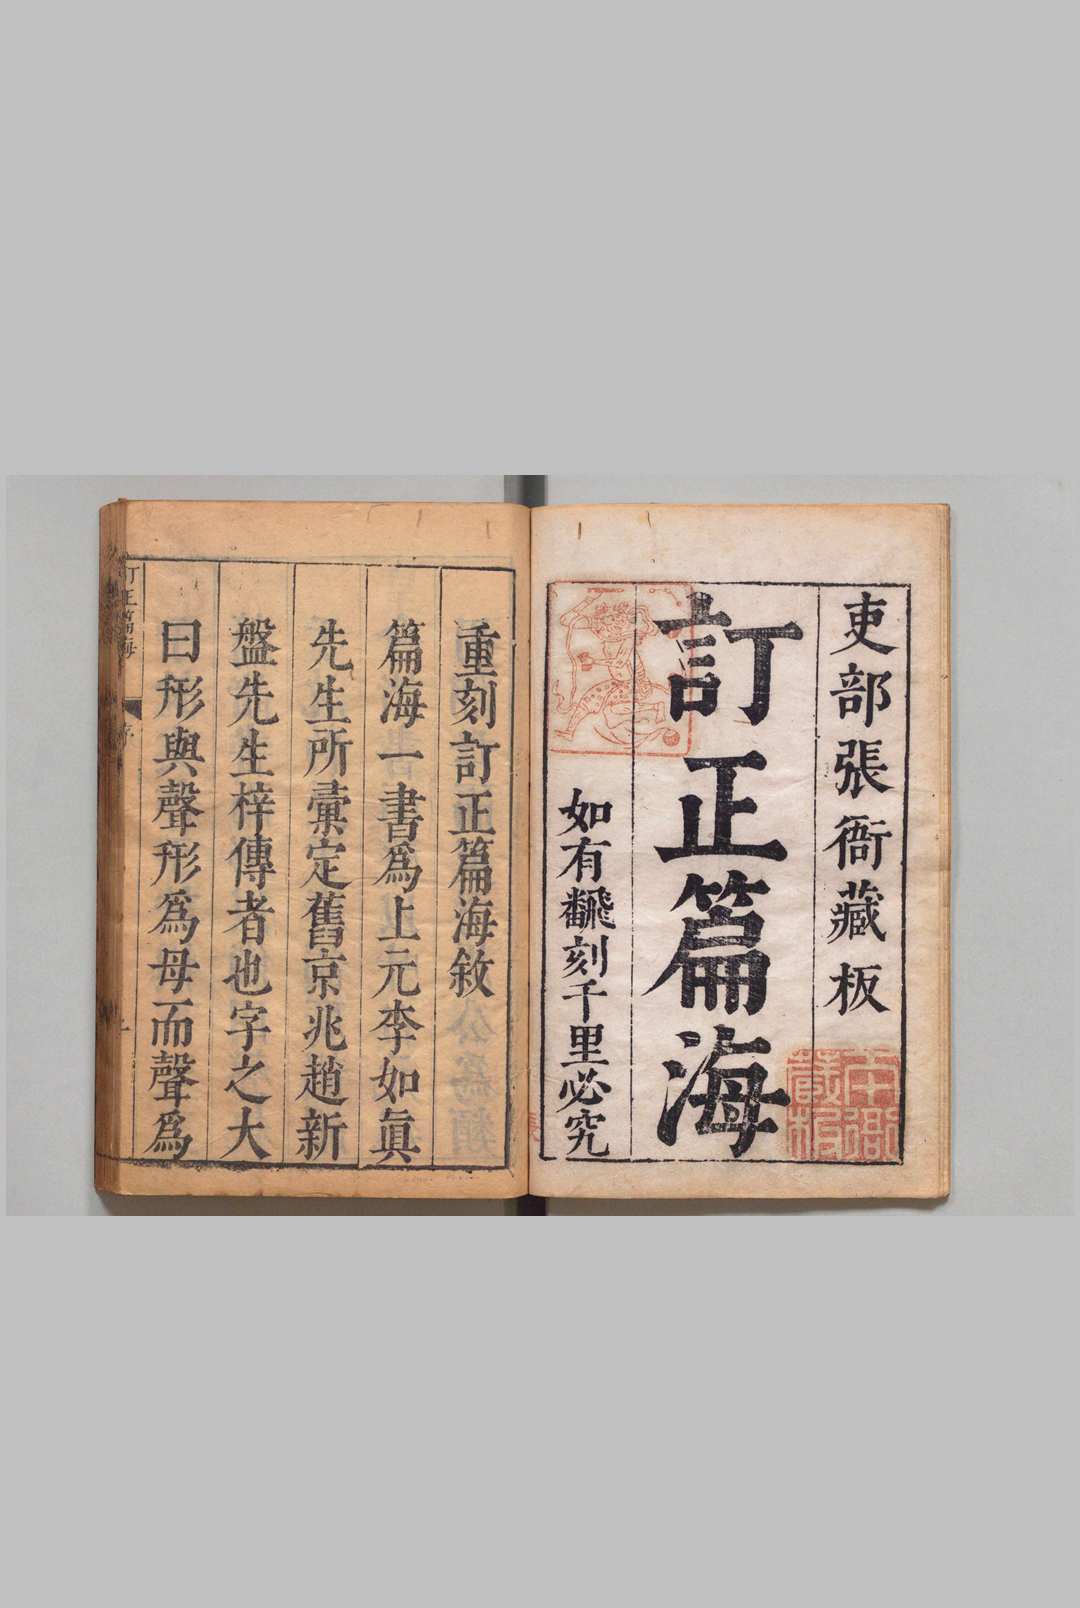 吏部張衙藏板
訂正篇海
如有飜刻千里必究
重刻訂正篇海敘
篇海一書爲上元李如眞
先生所彙定舊京兆趙新
盤先生梓傳者也字之大
曰形與聲形爲母而聲爲
訂正篇海
序